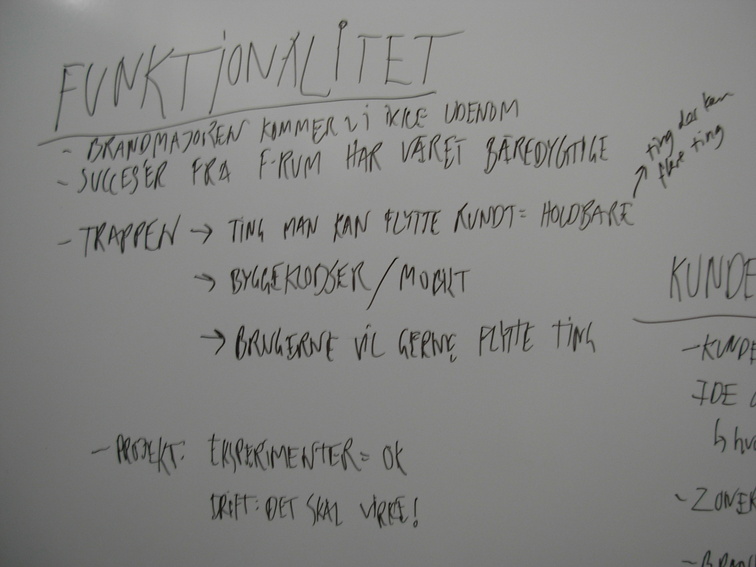 FUNKTIONALITET
- BRANDMAJOREN KOMMER VI IKKE UDENOM
- SUCCESER FRA F-RUM HAR VÆRET BÆREDYGTIGE
- TRAPPEN → TING MAN KAN FLYTTE RUNDT = HOLDBARE
↗ ting der kan
flere ting
→ BYGGEKLODSER / MOBILT
→ BRUGERNE VIL GERNE FLYTTE TING
- PROJEKT: EKSPERIMENTER = OK
DRIFT: DET SKAL VIRKE!
KUNDE
- KUNDE
IDE
- ZONER